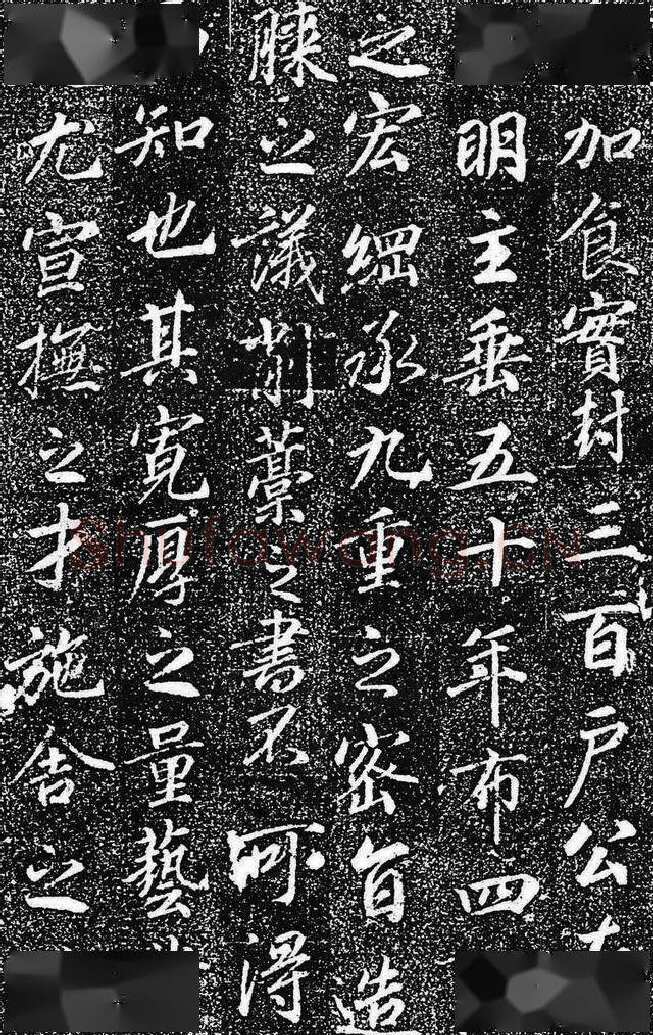 加食實封三百戶公
明主垂五十年布四
之宏綱承九重之密旨造
膝之議削藁之書不可得
知也其寬厚之量藝
尤宣撫之才施舍之